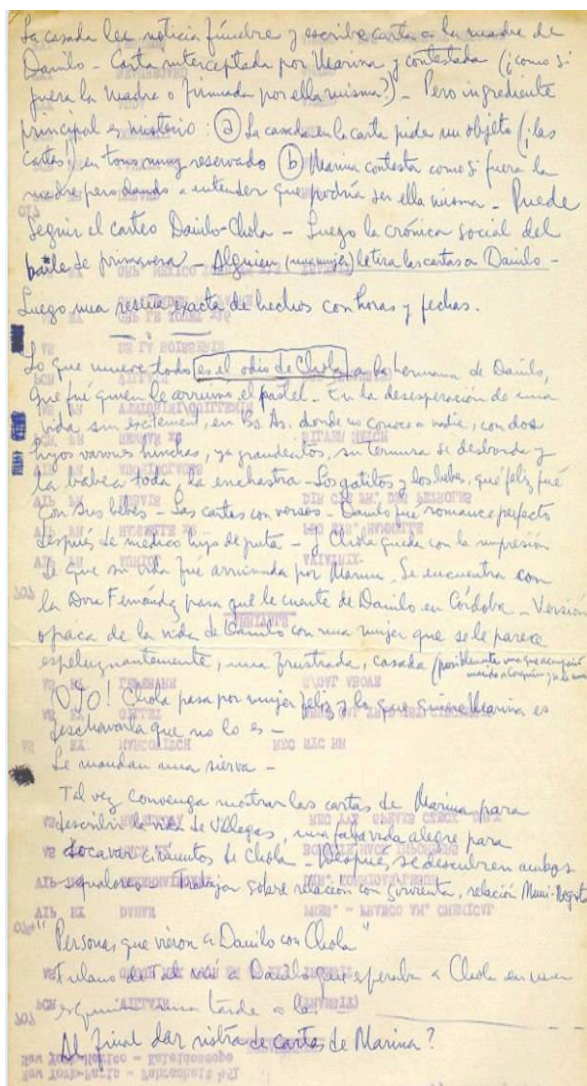 La casada lee noticia fúnebre y escribe carta a la madre de
Danilo - Carta interceptada por Marina y contestada (¿como si
fuera la madre o firmada por ella misma?) - Pero ingrediente
principal es misterio: (a) La casada en la carta pide un objeto (¡las
cartas!) en tono muy reservado (b) Marina contesta como si fuera la
madre pero dando a entender que podría ser ella misma - Puede
seguir el carteo Danilo-Chola - Luego la crónica social del
baile de primavera - Alguien (una mujer) le tira las cartas a Danilo -
Luego una reseña exacta de hechos con horas y fechas.
Lo que mueve todo es el odio de Chola a la hermana de Danilo,
que fué quien le arruinó el pastel. En la desesperación de una
vida sin excitement, en Bs. As. donde no conoce a nadie, con dos
hijos varones hinchas, ya grandentos, su ternura se desborda y
la babea toda, la enchastra - Los gatitos y los bebes, qué feliz fué
con sus bebés - Las cartas con versos - Danilo fué romance perfecto
después de médico hijo de puta - y Chola queda con la impresión
de que su vida fue arruinada por Marina. Se encuentra con
la Dora Fernández para que le cuente de Danilo en Córdoba - Versión
opaca de la vida de Danilo con una mujer que se le parece
espeluznantemente, una frustrada, casada (posiblemente una que
OJO! Chola pasa por mujer feliz y lo que quiere Marina es
deschavarla que no lo es -
Le mandan una sierva -
Tal vez convenga mostrar las cartas de Marina para
describir la vida de Villegas, una falsa vida alegre para
socavar cimientos de Chola - Después se descubren ambos
- Trabajar sobre relación con sirvienta, relación
"Personas que vieron a Danilo con Chola"
Fulano de Tal vió a Danilo que esperaba a Chola en una
esquina una tarde a las
Al final dar ristra de cartas de Marina?